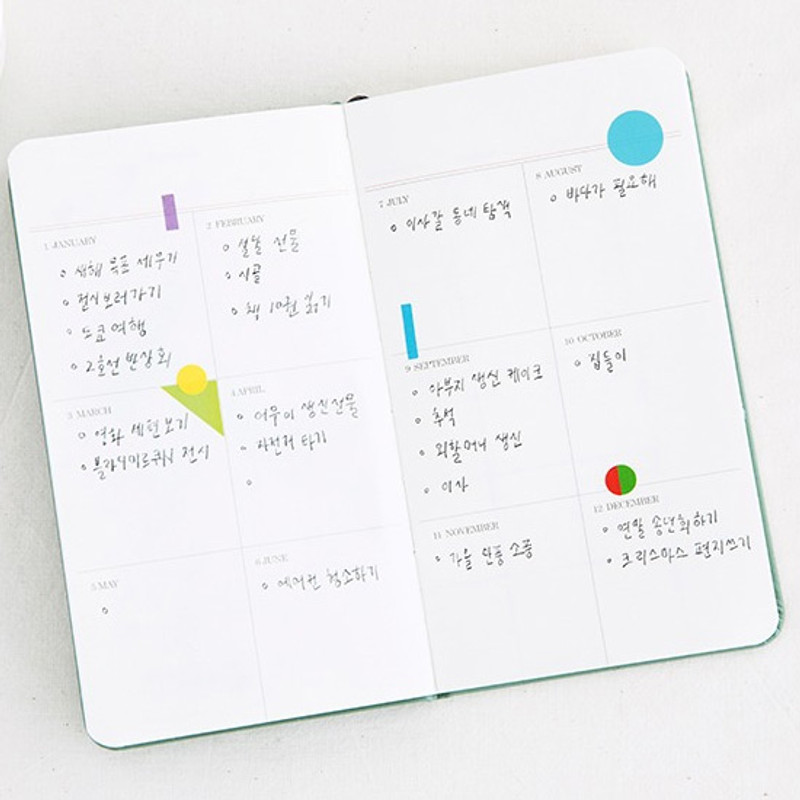 1 JANUARY
새해 목표 세우기
전시 보러가기
도쿄여행
2호선 반상회
2 FEBRUARY
설날 선물
시골
책 10권 읽기
3 MARCH
영화 세편보기
블라디미르쿠쉬 전시
4 APRIL
어무이 생신선물
자전거 타기
5 MAY
6 JUNE
에어컨 청소하기
7 JULY
이사갈 동네 탐색
8 AUGUST
바다가 필요해
9 SEPTEMBER
아부지 생신 케이크
추석
외할머니 생신
이사
10 OCTOBER
집들이
11 NOVEMBER
가을 단풍 소풍
12 DECEMBER
연말 송년회하기
크리스마스 편지쓰기